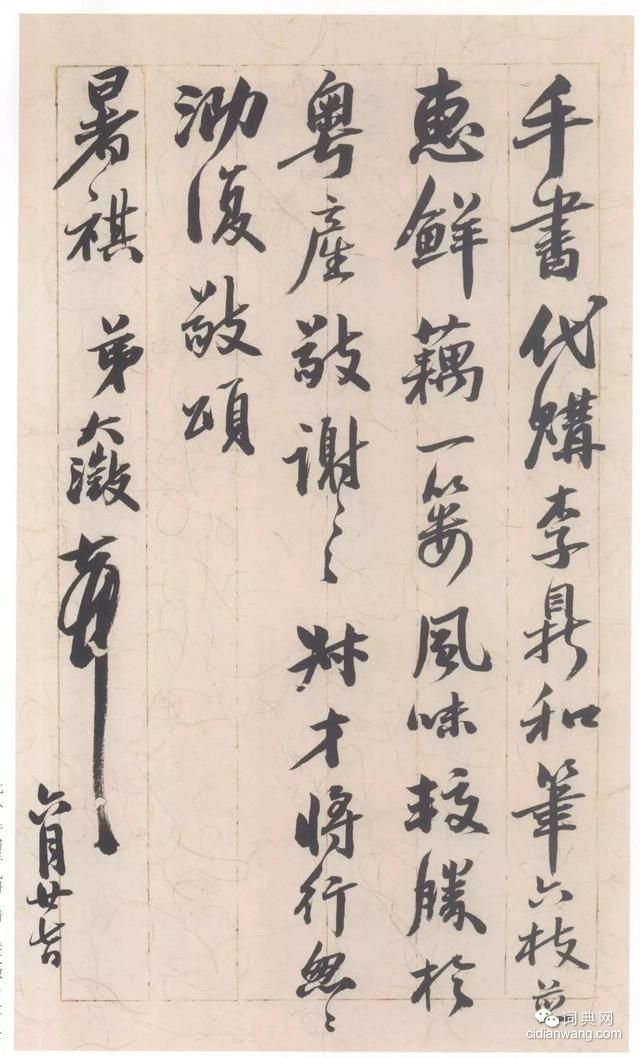 手書代購李鼎和筆六枝並
惠鮮藕一簍風味較勝於
粵產敬謝ミ財才將行匆ミ
泐復敬頌
暑祺 弟大澂
六月廿七日
词典网
cidianwang.com